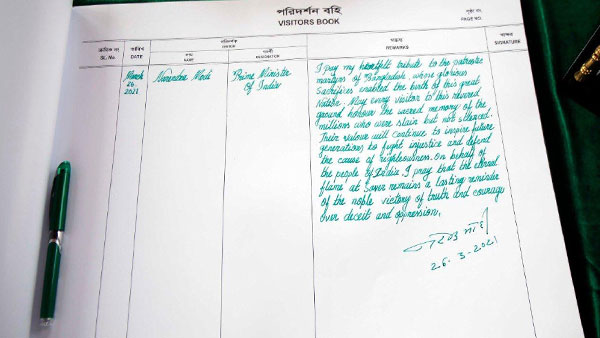 পরিদর্শন বহি
VISITORS BOOK
পৃষ্ঠা নং
PAGE NO.
ক্রমিক নং
SL. No
তারিখ
DATE
পরিদর্শক
VISITOR
নাম
NAME
পদবী
DESIGNATION
মন্তব্য
REMARKS
স্বাক্ষর
SIGNATURE
March
26
2021
Narendra Modi
Prime Minister
Of India
I pay my heartfelt tribute to the patriotic
martyrs of Bangladesh, whose glorious
Sacrifices enabled the birth of this great
Nation. May every visitor to this revered
ground honour the sacred memory of the
millions who were slain but not silenced.
Their valour will continue to inspire future
generations to fight injustice and defend
the cause of righteousness. On behalf of
the people of India I pray that the eternal
flame at Savar remains a lasting reminder
of the noble victory of truth and courage
over deceit and oppression.
26-3-2021